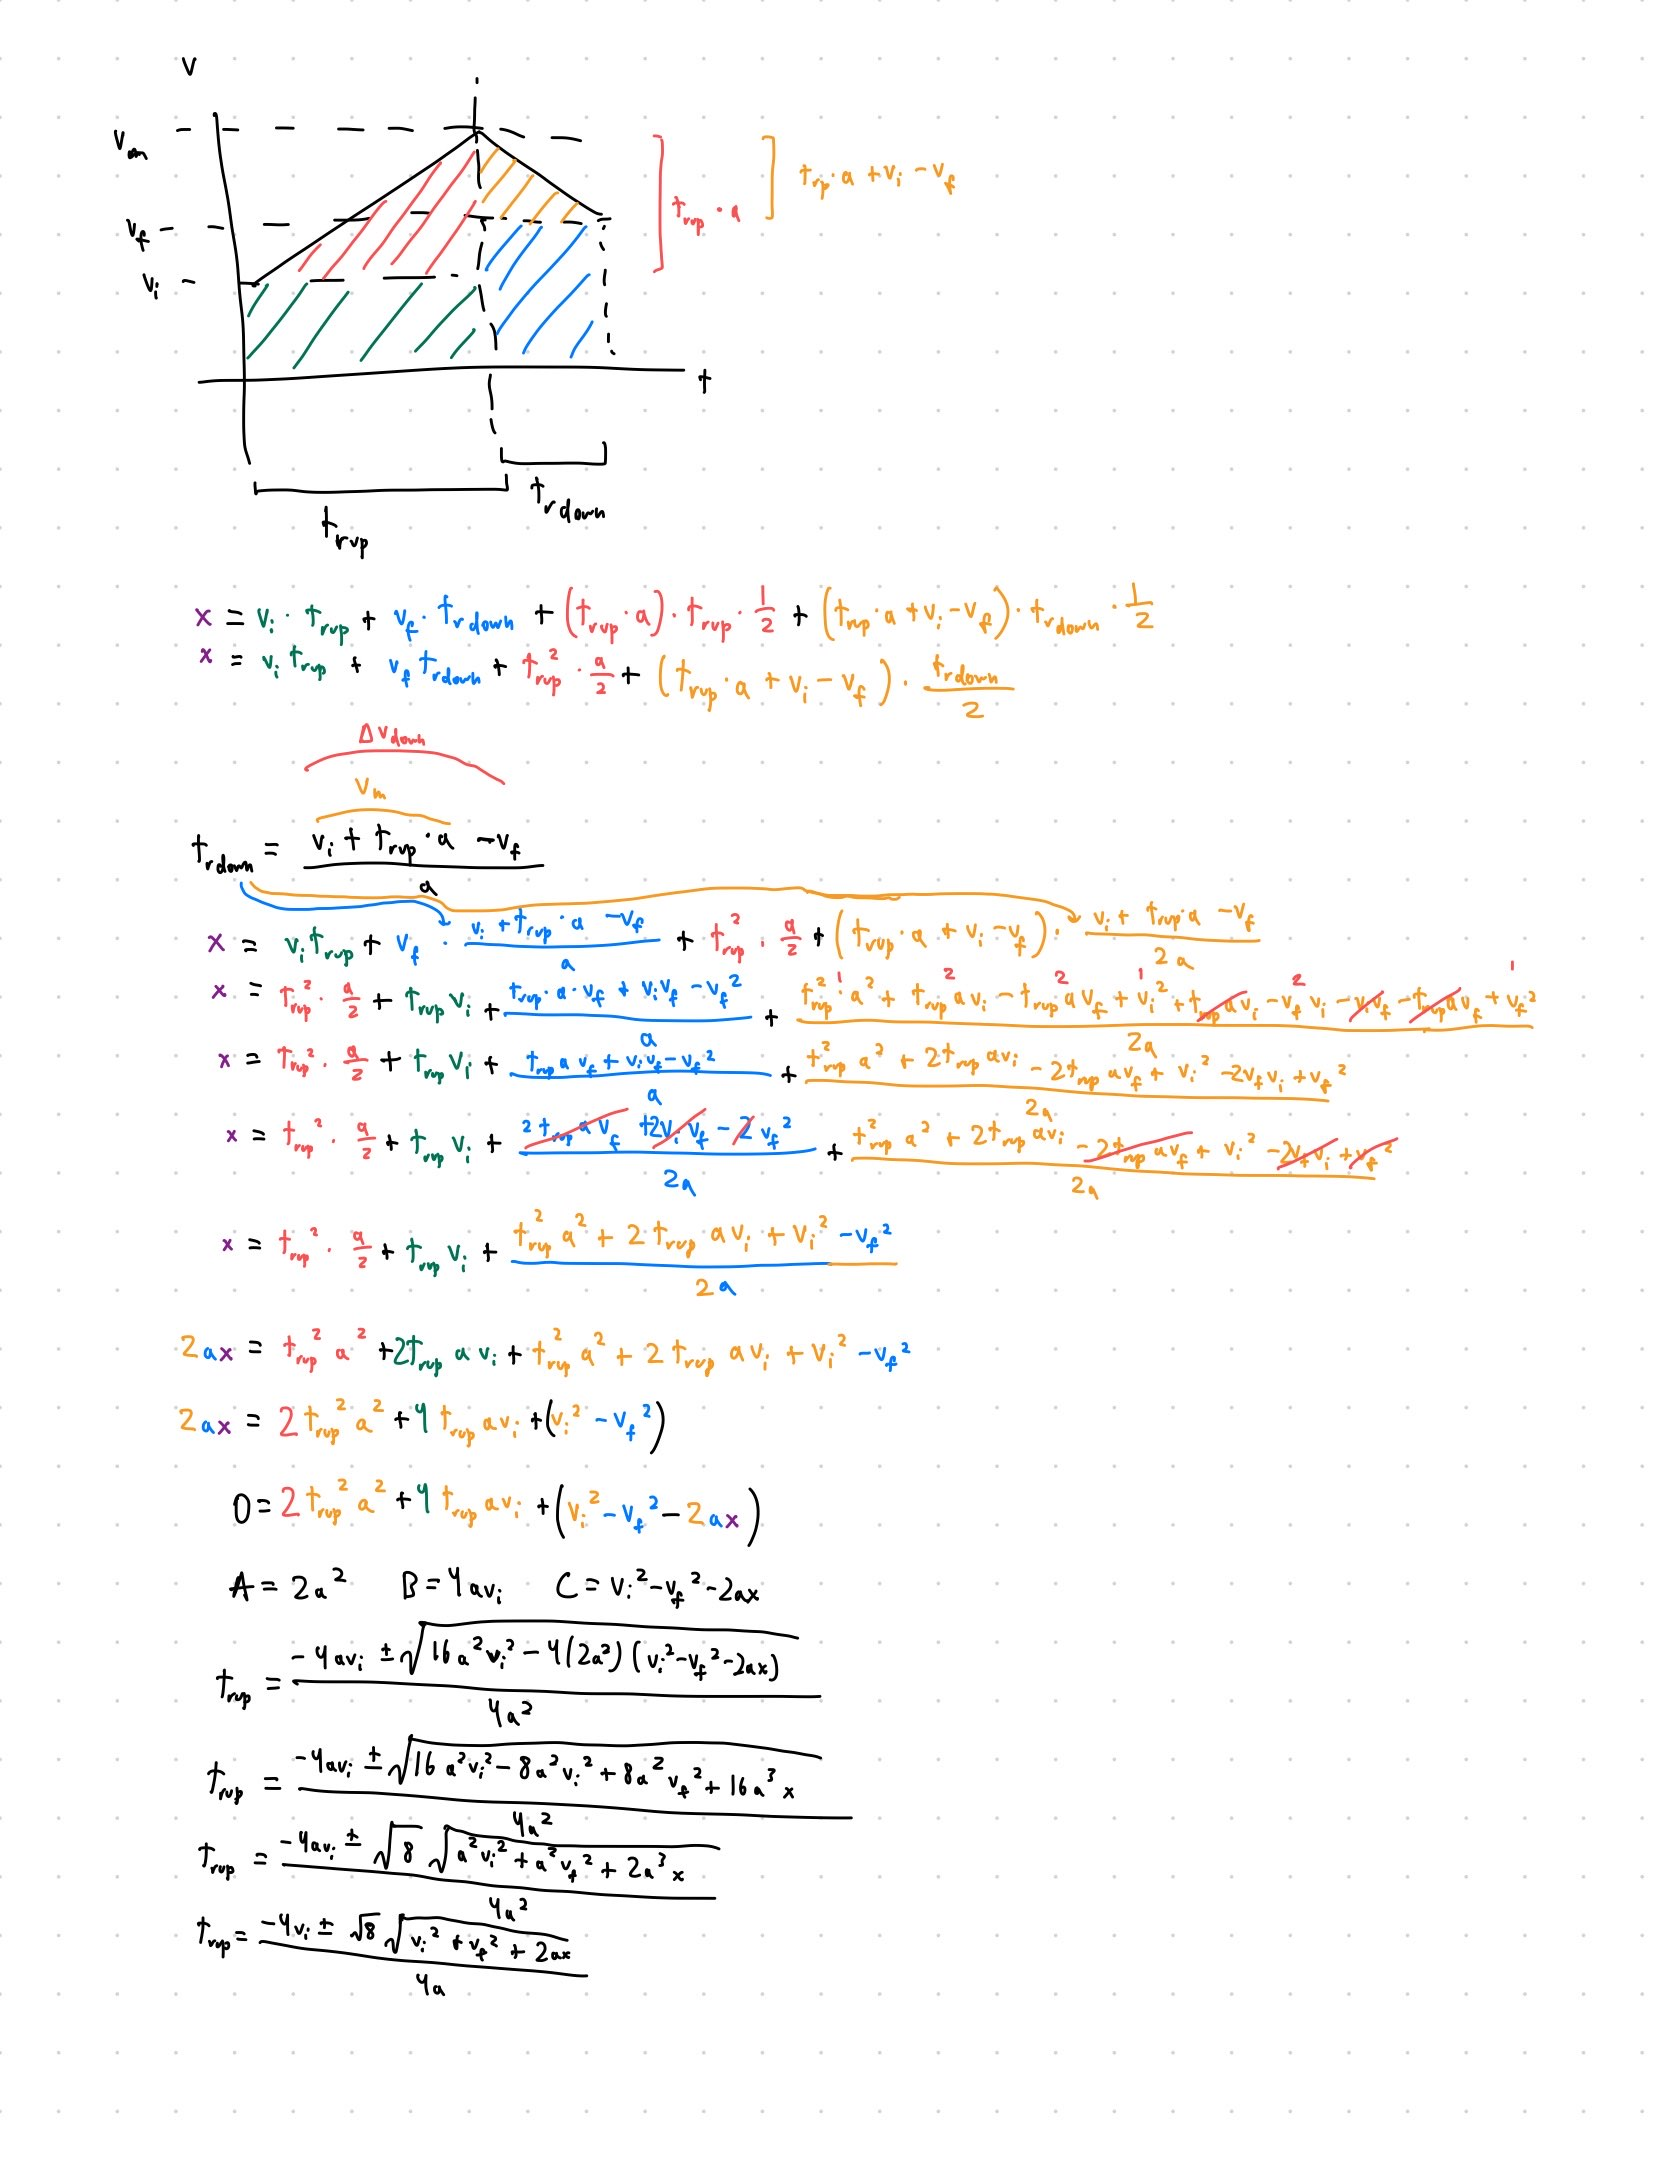 v
v_m
v_f
v_i
t_rup · a
t_rup · a + v_i − v_f
t
t_rdown
t_rup
x = v_i · t_rup + v_f · t_rdown + (t_rup · a) · t_rup · 1/2 + (t_rup · a + v_i − v_f) · t_rdown · 1/2
x = v_i t_rup + v_f t_rdown + t_rup² · a/2 + (t_rup · a + v_i − v_f) · t_rdown/2
Δv_down
v_m
t_rdown = (v_i + t_rup · a − v_f)/a
x = v_i t_rup + v_f · (v_i + t_rup · a − v_f)/a + t_rup² · a/2 + (t_rup · a + v_i − v_f) · (v_i + t_rup · a − v_f)/2a
1 2 2 1 2 1
x = t_rup² · a/2 + t_rup v_i + (t_rup · a · v_f + v_i v_f − v_f²)/a + (t_rup² a² + t_rup a v_i − t_rup a v_f + v_i² + t_rup a v_i − v_f v_i − v_i v_f − t_rup a v_f + v_f²)/2a
x = t_rup² · a/2 + t_rup v_i + (t_rup a v_f + v_i v_f − v_f²)/a + (t_rup² a² + 2 t_rup a v_i − 2 t_rup a v_f + v_i² − 2 v_f v_i + v_f²)/2a
x = t_rup² · a/2 + t_rup v_i + (2 t_rup a v_f + 2 v_i v_f − 2 v_f²)/2a + (t_rup² a² + 2 t_rup a v_i − 2 t_rup a v_f + v_i² − 2 v_f v_i + v_f²)/2a
x = t_rup² · a/2 + t_rup v_i + (t_rup² a² + 2 t_rup a v_i + v_i² − v_f²)/2a
2ax = t_rup² a² + 2 t_rup a v_i + t_rup² a² + 2 t_rup a v_i + v_i² − v_f²
2ax = 2 t_rup² a² + 4 t_rup a v_i + (v_i² − v_f²)
0 = 2 t_rup² a² + 4 t_rup a v_i + (v_i² − v_f² − 2ax)
A = 2a² B = 4av_i C = v_i² − v_f² − 2ax
t_rup = (−4av_i ± √(16a²v_i² − 4(2a²)(v_i² − v_f² − 2ax)))/4a²
t_rup = (−4av_i ± √(16a²v_i² − 8a²v_i² + 8a²v_f² + 16a³x))/4a²
t_rup = (−4av_i ± √8 √(a²v_i² + a²v_f² + 2a³x))/4a²
t_rup = (−4v_i ± √8 √(v_i² + v_f² + 2ax))/4a